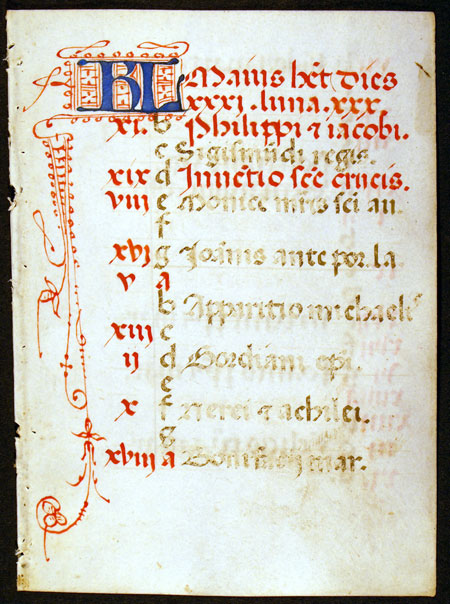 KL Maius hēt Dies
xxxi. luna. xxx.
xi. b Philippi & iacobi.
c Sigismūdi regis.
xix d Invētio scē crucis.
viii e Monice mr̄is sci au.
f
xvi g Joānis ante por. la
v a
b Apparitio michaelis
xiii c
ii d Gordiani epi.
e
x f Nerei & achilei.
g
xviii a Bonifacij mar.